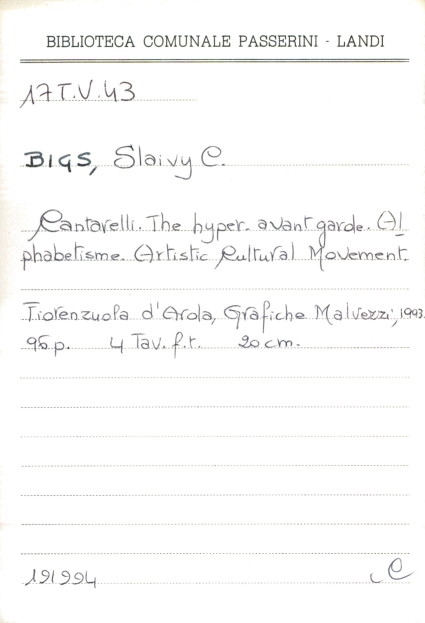 BIBLIOTECA COMUNALE PASSERINI - LANDI
17 T.V.43
BIGS, Slaivy C.
Cantarelli. The hyper. avant garde. Al
phabetisme. Artistic Cultural Movement.
Fiorenzuola d'Arda, Grafiche Malvezzi, 1993.
96 p. 4 Tav. f.t. 20 cm.
191994 C